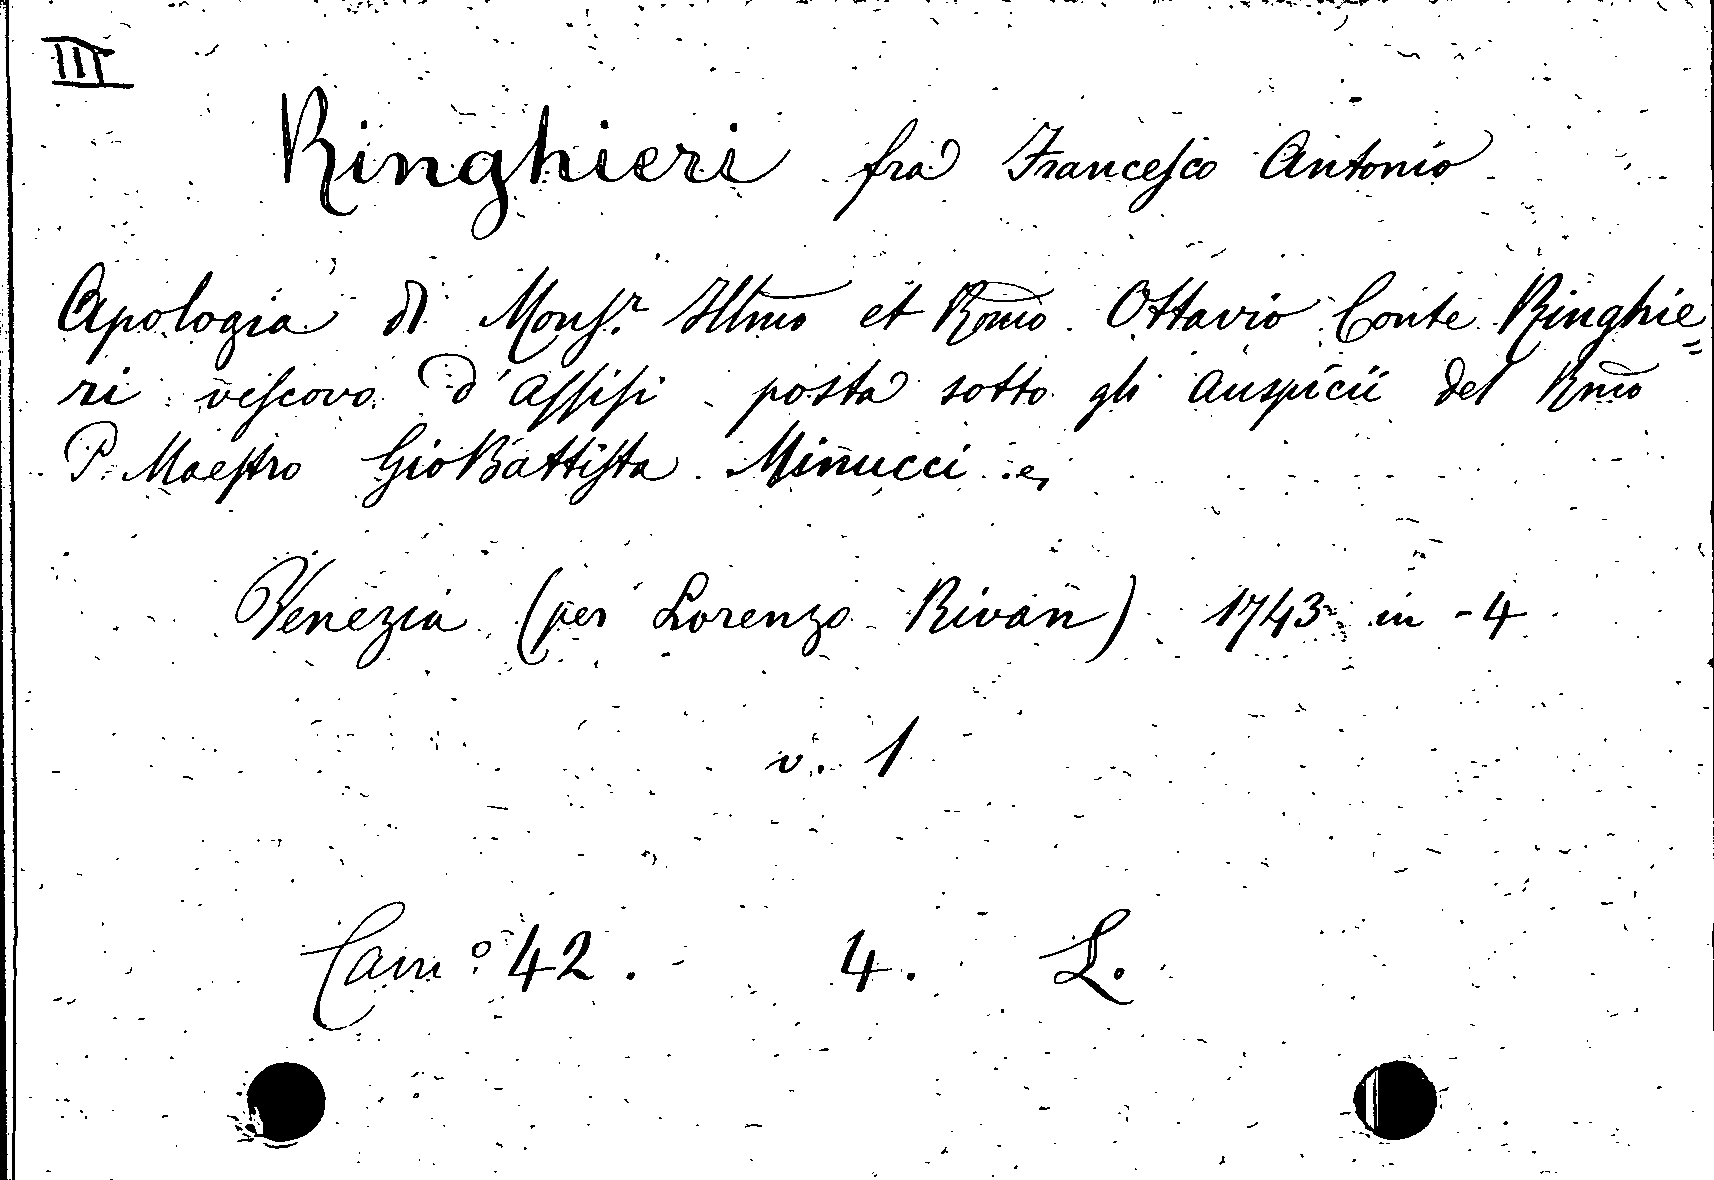 III
Ringhieri fra Francesco Antonio
Apologia di Monsr. Illmo et Rmo. Ottavio Conte Ringhie=
ri vescovo d'Assisi posta sotto gli auspicii del Rmo
P. Maestro GioBattista Minucci
Venezia (per Lorenzo Rivan) 1743 in - 4
v. 1
Cam.° 42. 4. L.